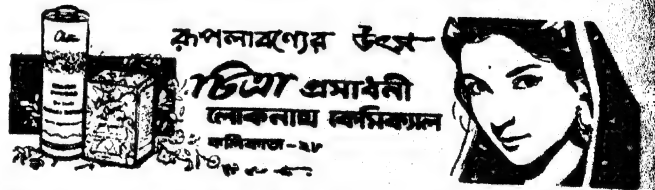 রূপলাবণ্যের উৎস
চিত্রা প্রসাধনী
লোকনাথ কেমিক্যাল
কলিকাতা-২৮